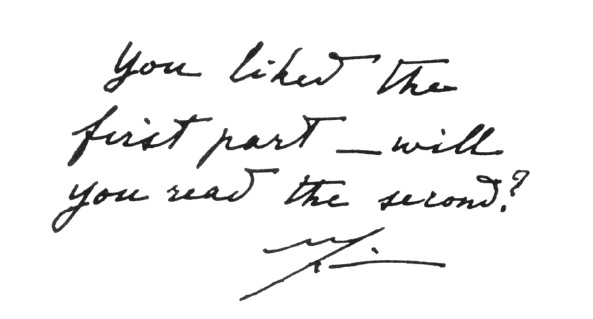 You liked the
first part — will
you read the second?